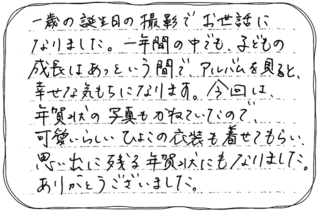 一歳の誕生日の撮影でお世話に
なりました。一年間の中でも、子どもの
成長はあっという間で、アルバムを見ると、
幸せな気もちになります。今回は、
年賀状の写真もかねていたので、
可愛いらしいひよこの衣装も着せてもらい、
思い出に残る年賀状にもなりました。
ありがとうございました。